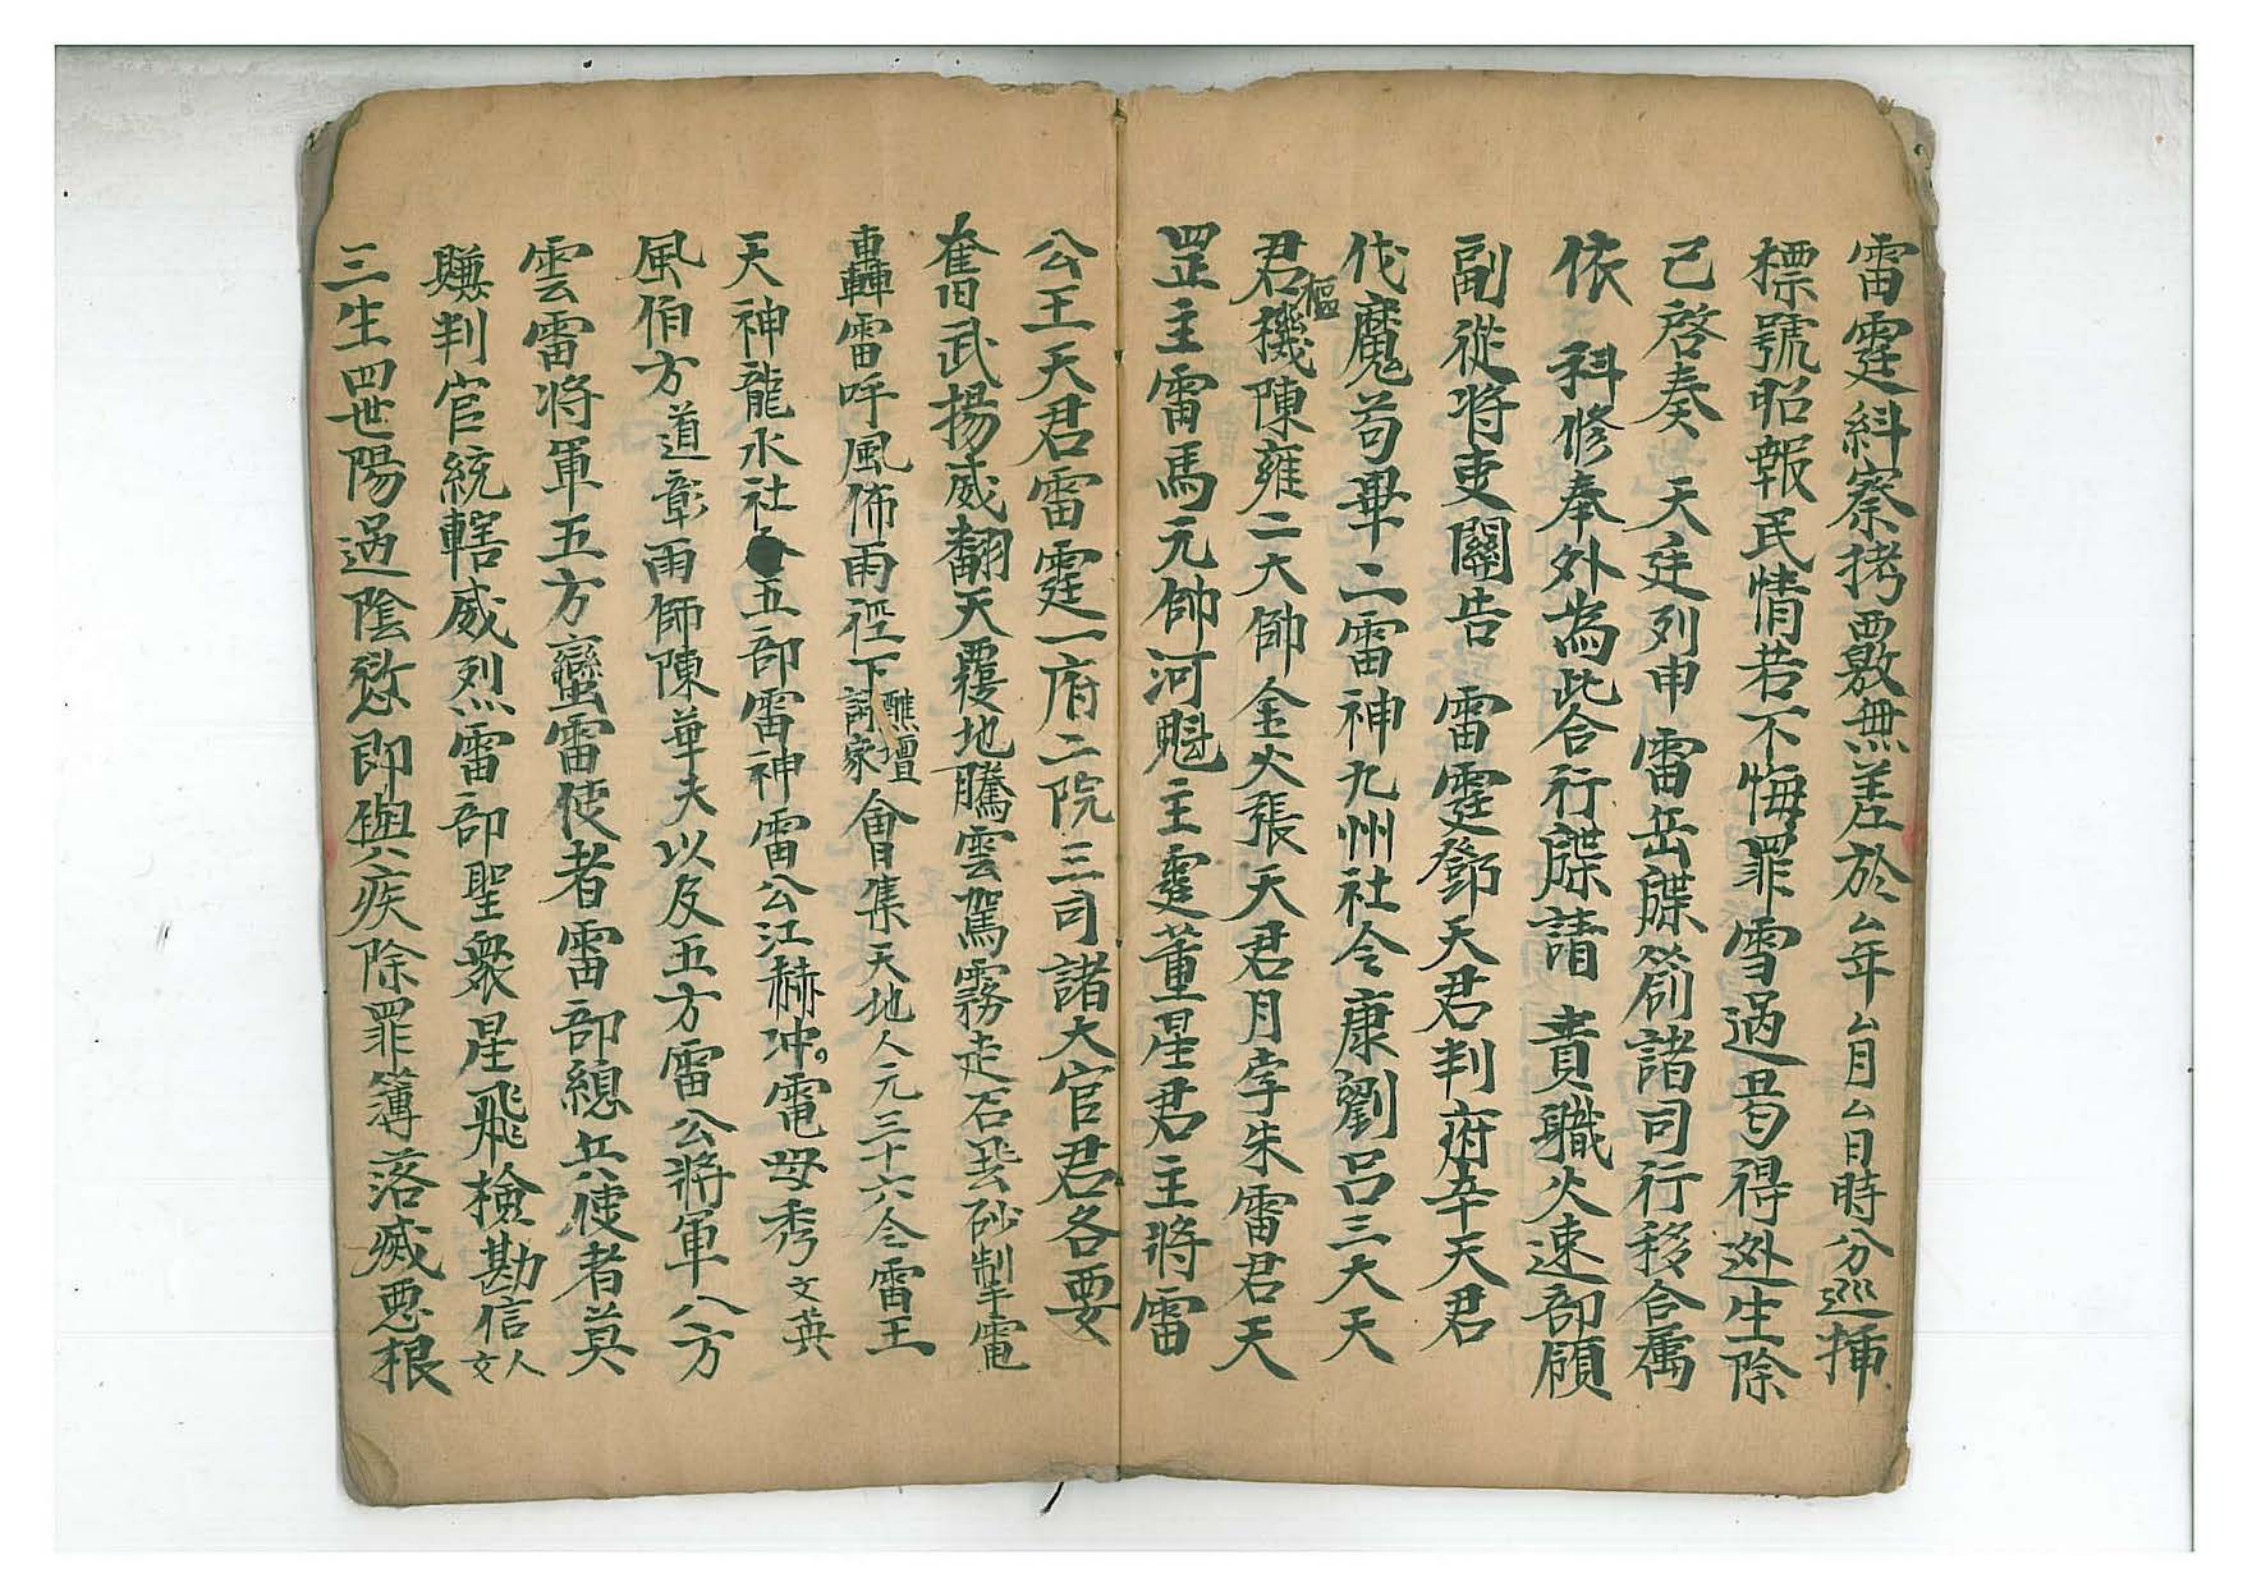 雷霆糾察拷覈無差於厶年厶月厶日時分巡揷
標號昭報民情若不悔罪雪過曷得迯生除
己啓奏天廷列申雷岳牒箚諸司行移合屬
依科修奉外為此合行牒請責職火速部領
副從將吏關告雷霆鄧天君判府辛天君
伐魔苟畢二雷神九州社令康劉吕三大天
君樞機陳雍二大帥金火張天君月孛朱雷君天
罡主雷馬元帥河魁主霆董星君主將雷
公王天君雷霆一府二院三司諸大官君各要
奮武揚威翻天覆地騰雲駕霧走石飛砂掣電
轟雷呼風佈雨徑下醮壇詞家會集天地人元三十六令雷王
天神龍水社令五部雷神雷公江赫冲電母秀文英
風伯方道彰雨師陳華夫以及五方雷公將軍八方
雲雷将軍五方蠻雷使者雷部總兵使者莫
賺判官統轄威烈雷部聖衆星飛檢勘信人文
三生四世陽過陰愆即與六疾除罪簿落滅惡根